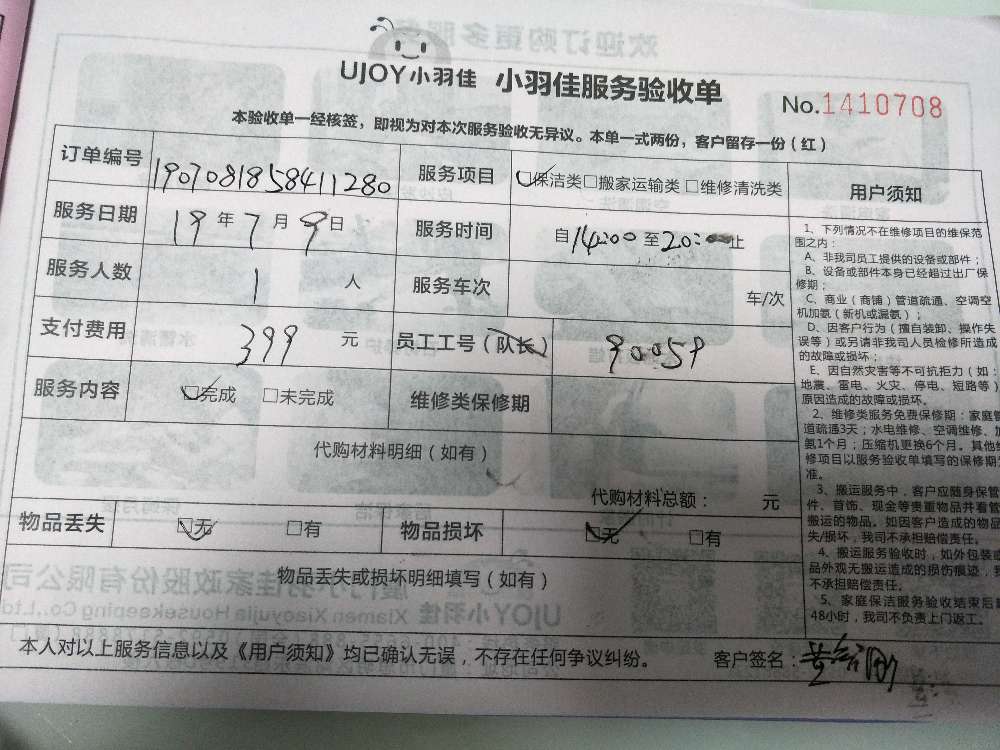 UJOY小羽佳 小羽佳服务验收单
No.1410708
本验收单一经核签，即视为对本次服务验收无异议。本单一式两份，客户留存一份（红）
订单编号 1907081858411280 服务项目 □保洁类□搬家运输类□维修清洗类
服务日期 19年7月9日 服务时间 自14:00至20:00止
服务人数 1人 服务车次 车/次
支付费用 399元 员工工号（队长） 90059
服务内容 □完成 □未完成 维修类保修期
代购材料明细（如有）
代购材料总额： 元
物品丢失 □无 □有 物品损坏 □无 □有
物品丢失或损坏明细填写（如有）
本人对以上服务信息以及《用户须知》均已确认无误，不存在任何争议纠纷。 客户签名：
用户须知
1、下列情况不在维修项目的维保范
围之内：
A、非我司员工提供的设备或部件；
B、设备或部件本身已经超过出厂保
修期；
C、商业（商铺）管道疏通、空调空
机加氨（新机或漏氨）；
D、因客户行为（擅自装卸、操作失
误等）或另请非我司人员检修所造成
的故障或损坏；
E、因自然灾害等不可抗拒力（如：
地震、雷电、火灾、停电、短路等）
原因造成的故障或损坏。
2、维修类服务免费保修期：家庭管
道疏通3天；水电维修、空调维修、加
氨1个月；压缩机更换6个月。其他维
修项目以服务验收单填写的保修期为
准。
3、搬运服务中，客户应随身保管
件、首饰、现金等贵重物品并看管
搬运的物品。如因客户造成的物品
失/损坏，我司不承担赔偿责任。
4、搬运服务验收时，如外包装或
品外观无搬运造成的损伤痕迹，我
不承担赔偿责任。
5、家庭保洁服务验收结束后
48小时，我司不负责上门返工。